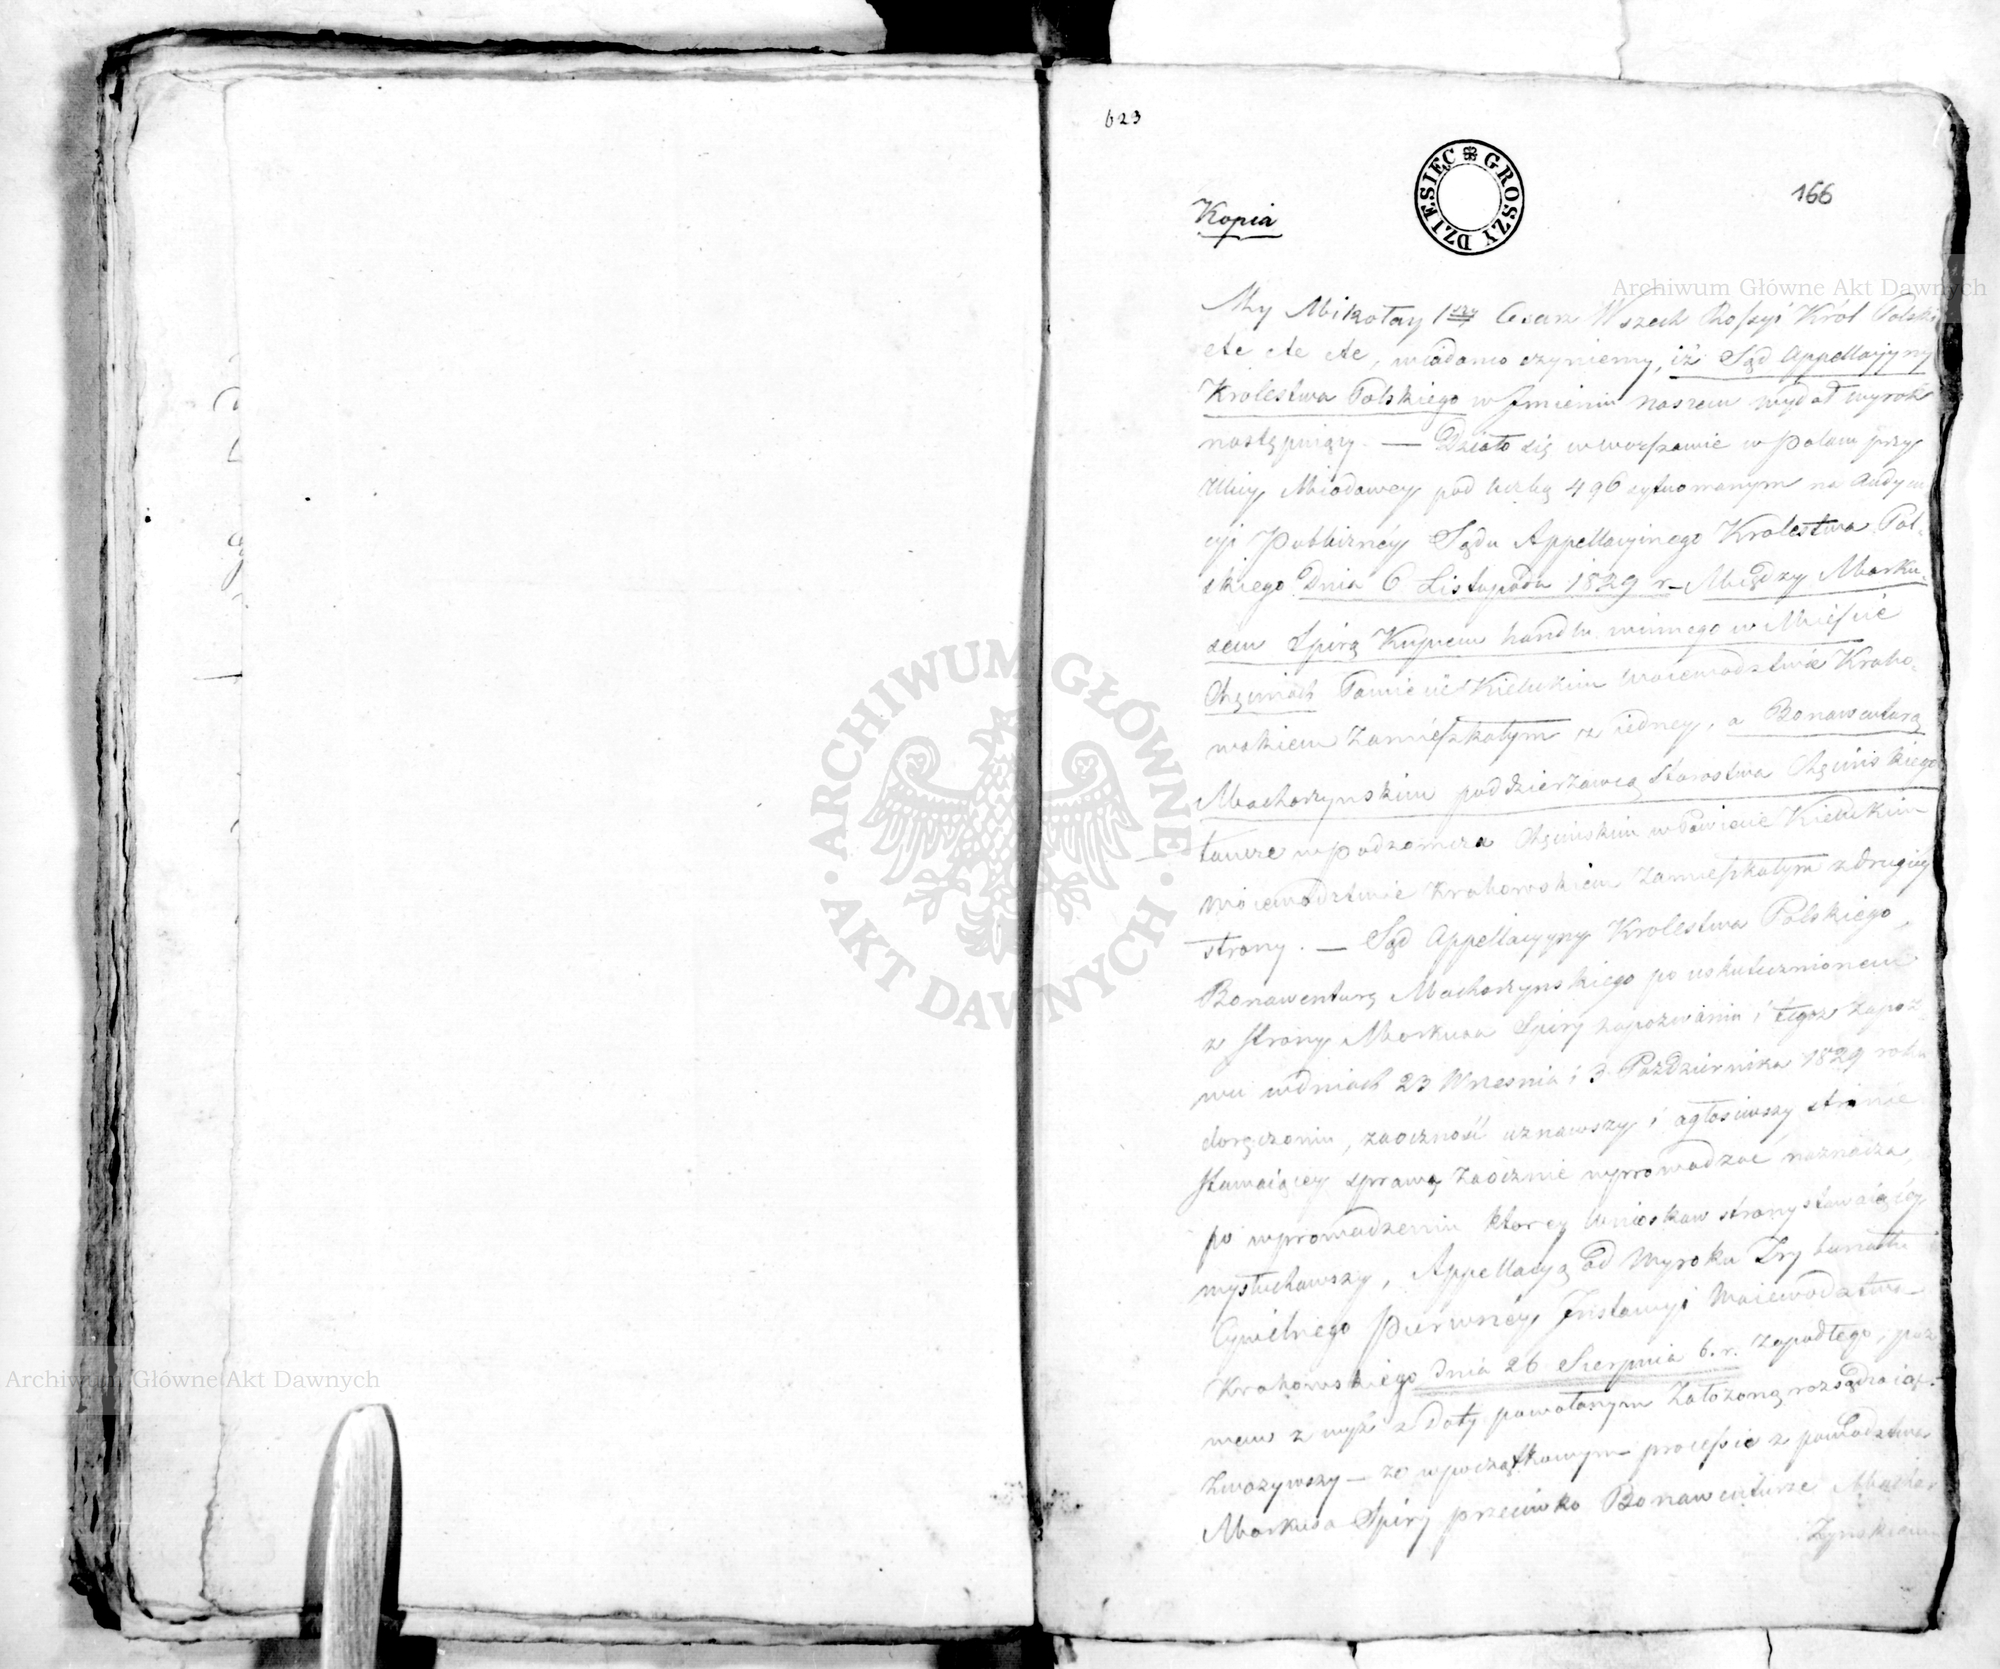 623
DZIESIĘC GROSZY
166
Kopia
My Mikołay 1szy Cesarz Wszech Rossyi Król Polski
etc etc etc, wiadomo czyniemy, iż Sąd Appellacyiny
Krolestwa Polskiego w Jmieniu naszem wydał wyrok
następuiący. — Działo się w Warszawie w Pałacu przy
Ulicy Miodowey pod liczbą 496 sytuowanym na Audyen
cyi Publiczney Sądu Appellacyinego Krolestwa Pol-
skiego Dnia 6 Listopada 1829 r — Między Marku-
sem Spirą Kupcem handlu winnego w Mieście
Chęcinach Powiecie Kieleckim Woiewodztwie Krako-
wskiem Zamieszkałym z iedney, a Bonawenturą
Machorzynskim poddzierżawcą Starostwa Chęcińskiego
w Podzamczu Chęcińskim w Powiecie Kieleckim
Woiewodztwie Krakowskiem Zamieszkałym z drugiey
strony. — Sąd Appellacyiny Krolestwa Polskiego,
Bonawenturę Machorzynskiego po uskutecznionem
z strony Markusa Spiry zapozwaniu i tegoż zapoz-
wu w dniach 23 Wrzesnia i 3 Pazdziernika 1829 roku
doręczeniu, zaoczność uznawszy i ogłosiwszy stronie
stawaiącey sprawę zaocznie wyprowadzać naznacza,
po wprowadzeniu ktorey wniosków strony stawaiącey
wysłuchawszy, Appellacyą od Wyroku Trybunału
Cywilnego Pierwszey Instancyi Woiewodztwa
Krakowskiego dnia 26 Sierpnia b. r. zapadłego, poz
wem z wyż z daty powołanym założoną rozsądzaiąc.
Zważywszy — że w początkowym processie z powodztwa
Markusa Spiry przeciwko Bonawenturze Machor
zynskiemu
Archiwum Główne Akt Dawnych
ARCHIWUM GŁÓWNE AKT DAWNYCH
Archiwum Główne Akt Dawnych